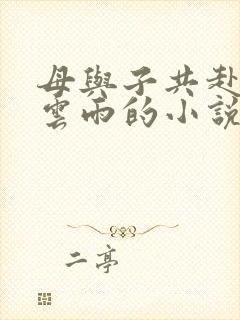 母與子共赴
雲雨的小說
二亭